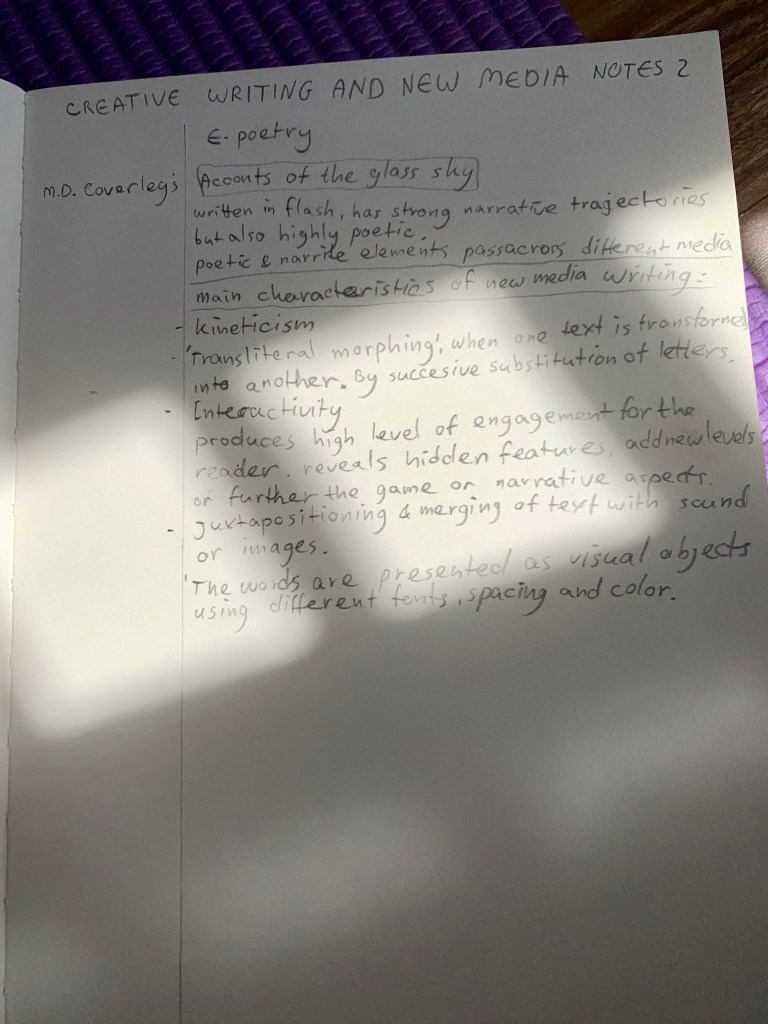 CREATIVE WRITING AND NEW MEDIA NOTES 2
E. poetry
M.D. Coverley's Acconts of the glass sky
written in flash, has strong narrative trajectories
but also highly poetic.
poetic & narrite elements passacross different media
main characteristics of new media writing:
- kineticism
- 'Transliteral morphing', when one text is transformed
into another. By succesive substitution of letters.
- Interactivity
produces high level of engagement for the
reader. reveals hidden features, add new levels
or further the game or narrative aspects.
- juxtapositioning & merging of text with sound
or images.
'The words are presented as visual objects
using different fonts, spacing and color.